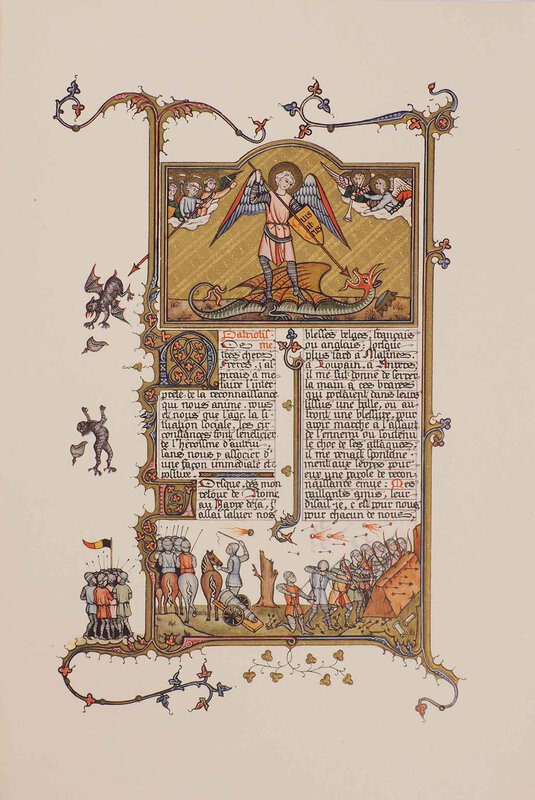 Patriotis-
me.
M
très chers
Frères, j'ai-
merais à me
faire l'inter-
prète de la reconnaissance
qui nous anime, vous
et nous que l'âge, la si-
tuation sociale, les cir-
constances font bénéficier
de l'héroïsme d'autrui
sans nous y associer d'
une façon immédiate et
positive.
Lorsque, dès mon
retour de Rome,
au Havre déjà, j'
allai saluer nos
blessés belges, français
ou anglais; lorsque
plus tard à Malines,
à Louvain, à Anvers,
il me fut donné de serrer
la main à ces braves
qui portaient dans leurs
tissus une balle, ou au
front une blessure, pour
avoir marché à l'assaut
de l'ennemi ou soutenu
le choc de ses attaques,
il me venait spontané-
ment aux lèvres pour
eux une parole de recon-
naissance émue: Mes
vaillants amis, leur
disai-je, c'est pour nous,
pour chacun de nous,